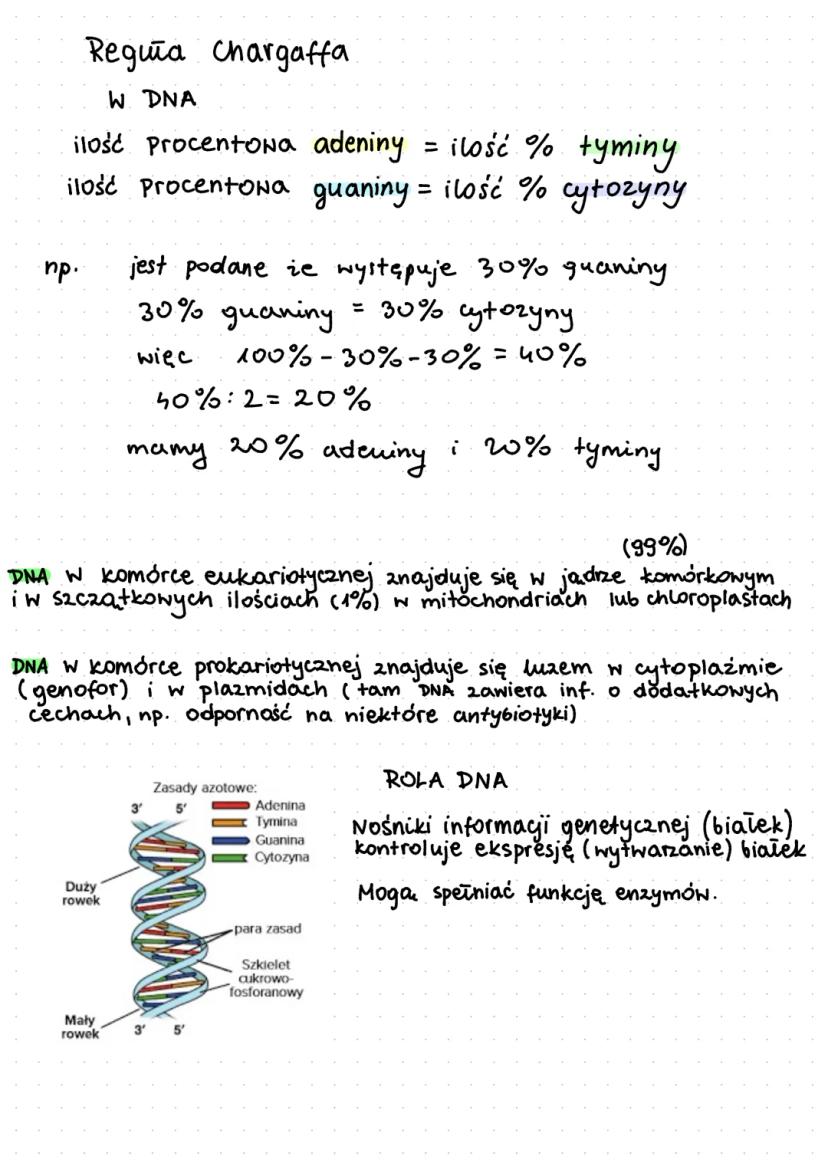 Reguła Chargaffa
W DNA
ilość procentowa adeniny = ilość % tyminy
ilość procentowa guaniny = ilość % cytozyny
np. jest podane że występuje 30% guaniny
30% guaniny = 30% cytozyny
więc 100% - 30% - 30% = 40%
40% : 2 = 20%
mamy 20% adeniny i 20% tyminy
(99%)
DNA w komórce eukariotycznej znajduje się w jądrze komórkowym
i w szczątkowych ilościach (1%) w mitochondriach lub chloroplastach
DNA w komórce prokariotycznej znajduje się luzem w cytoplaźmie
(genofor) i w plazmidach (tam DNA zawiera inf. o dodatkowych
cechach, np. odporność na niektóre antybiotyki)
ROLA DNA
Nośniki informacji genetycznej (białek)
kontroluje ekspresję (wytwarzanie) białek
Mogą spełniać funkcję enzymów.
Zasady azotowe:
3' 5'
Adenina
Tymina
Guanina
Cytozyna
Duży
rowek
para zasad
Szkielet
cukrowo-
fosforanowy
Mały
rowek
3' 5'